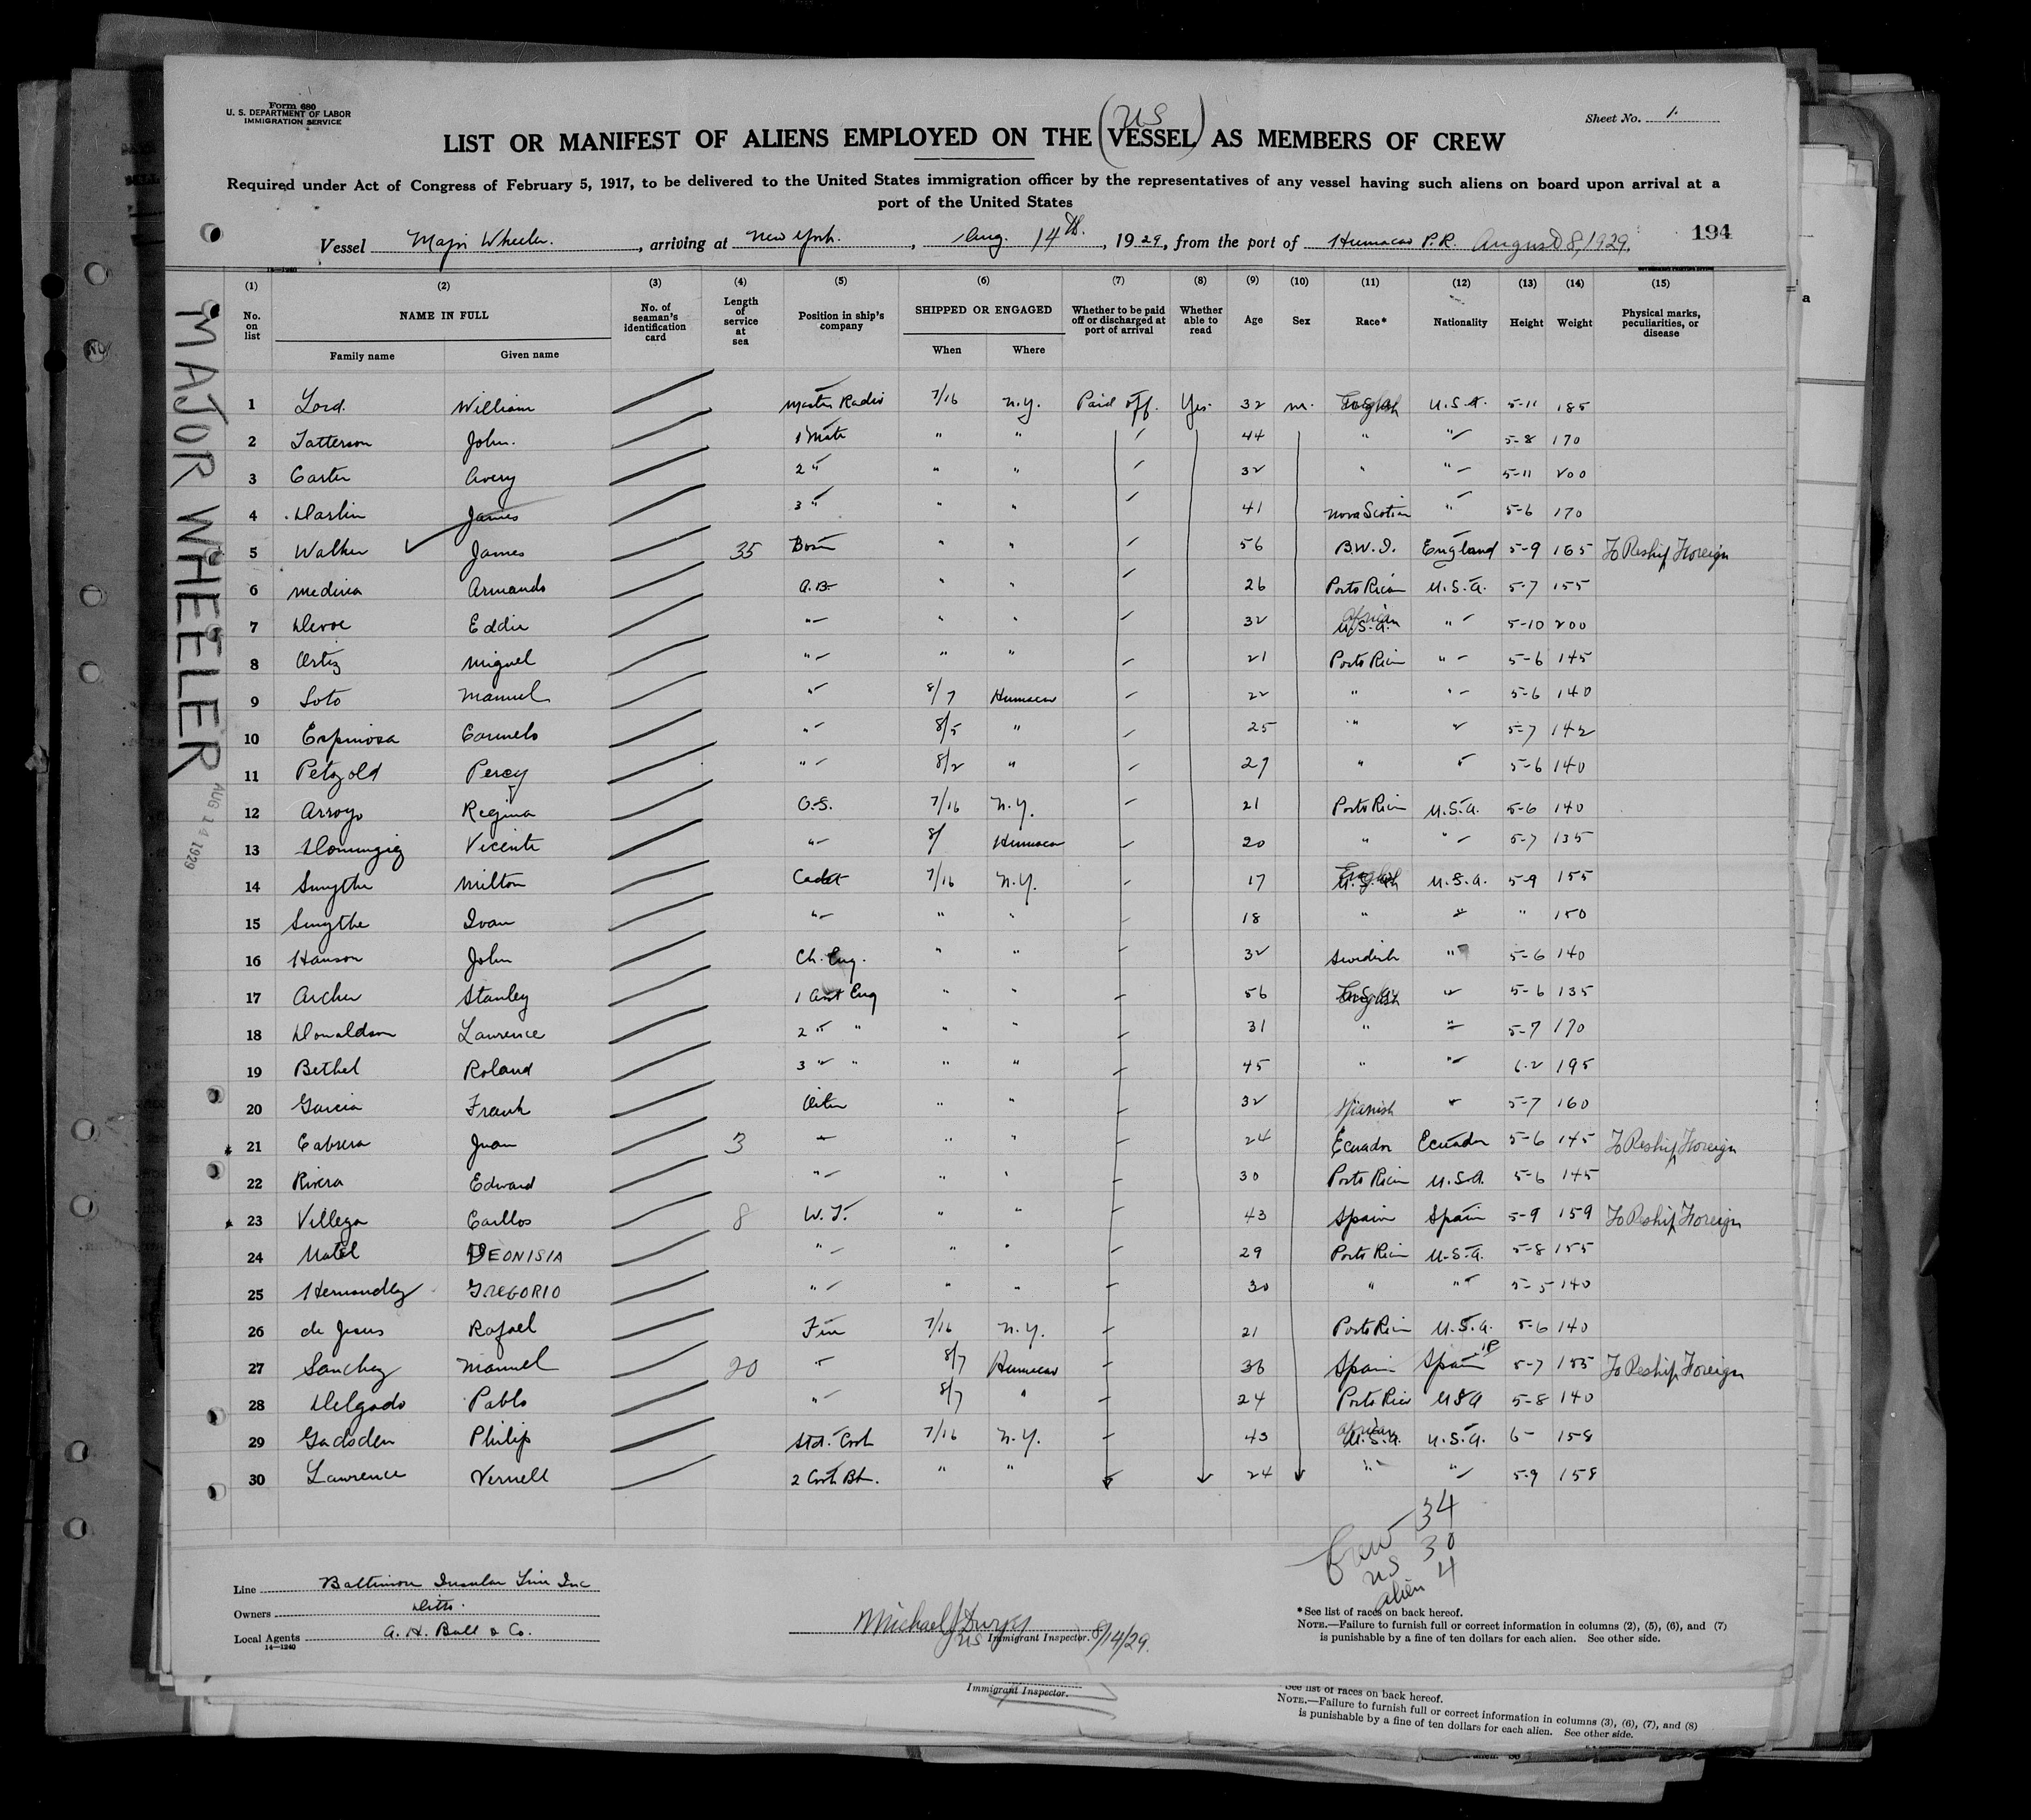 Form 680
U. S. DEPARTMENT OF LABOR
IMMIGRATION SERVICE
Sheet No. 1.
(US)
LIST OR MANIFEST OF ALIENS EMPLOYED ON THE VESSEL AS MEMBERS OF CREW
Required under Act of Congress of February 5, 1917, to be delivered to the United States immigration officer by the representatives of any vessel having such aliens on board upon arrival at a
port of the United States
194
Vessel Major Wheeler., arriving at New York., Aug. 14th., 1929, from the port of Humacao P.R. August 8, 1929.
14—1240
MAJOR WHEELER
AUG 14 1929
(1) (2) (3) (4) (5) (6) (7) (8) (9) (10) (11) (12) (13) (14) (15)
No. on list NAME IN FULL Family name Given name No. of seaman's identification card Length of service at sea Position in ship's company SHIPPED OR ENGAGED When Where Whether to be paid off or discharged at port of arrival Whether able to read Age Sex Race* Nationality Height Weight Physical marks, peculiarities, or disease
1 Lord. William Master Radio 7/16 N.Y. Paid off. Yes. 32 m. English U.S.A. 5-11 185
2 Tatterson John. 1 Mate " " 44 " " 5-8 170
3 Carter Avery 2 " " " 32 " " 5-11 200
4 Darlin James 3 " " " 41 Nova Scotian " 5-6 170
5 Walker James 35 Bosn " " 56 B.W.I. England 5-9 165 To Reship Foreign
6 Medina Armando A.B. " " 26 Porto Rican U.S.A. 5-7 155
7 Devoe Eddie " " " 32 African U.S.A. " 5-10 200
8 Ortiz Miguel " " " 21 Porto Rican " 5-6 145
9 Soto Manuel " 8/7 Humacao 22 " " 5-6 140
10 Espinosa Carmelo " 8/5 " 25 " " 5-7 142
11 Petzold Percy " 8/2 " 27 " " 5-6 140
12 Arroyo Regina O.S. 7/16 N.Y. 21 Porto Rican U.S.A. 5-6 140
13 Domingig Vicente " 8/ Humacao 20 " " 5-7 135
14 Smythe Milton Cadet 7/16 N.Y. 17 English U.S.A. 5-9 155
15 Smythe Ivan " " " 18 " " " 150
16 Hanson John Ch. Eng. " " 32 Swedish " 5-6 140
17 Archer Stanley 1 Asst Eng " " 56 English " 5-6 135
18 Donaldson Lawrence 2 " " " " 31 " " 5-7 170
19 Bethel Roland 3 " " " " 45 " " 6-2 195
20 Garcia Frank Oiler " " 32 Spanish " 5-7 160
21 Cabrera Juan 3 " " " 24 Ecuador Ecuador 5-6 145 To Reship Foreign
22 Rivera Edward " " " 30 Porto Rican U.S.A. 5-6 145
23 Villega Carllos 8 W.T. " " 43 Spain Spain 5-9 159 To Reship Foreign
24 Matel DEONISIA " " " 29 Porto Rican U.S.A. 5-8 155
25 Hernandez GREGORIO " " " 30 " " 5-5 140
26 de Jesus Rafael Fire 7/16 N.Y. 21 Porto Rican U.S.A. 5-6 140
27 Sanchez Manuel 20 " 8/7 Humacao 36 Spain Spain 5-7 155 To Reship Foreign
28 Delgado Pablo " 8/7 " 24 Porto Rico USA 5-8 140
29 Gadsden Philip Std. Cook 7/16 N.Y. 43 African U.S.A. U.S.A. 6- 158
30 Lawrence Vernell 2 Cook Bt. " " 24 " " 5-9 158
Crew 34
US 30
alien 4
Line Baltimore Insular Line Inc
Owners Ditto.
Local Agents A. H. Bull & Co.
14—1240
US Immigrant Inspector. 8/14/29.
*See list of races on back hereof.
NOTE.—Failure to furnish full or correct information in columns (2), (5), (6), and (7)
is punishable by a fine of ten dollars for each alien. See other side.
Immigrant Inspector.
See list of races on back hereof.
NOTE.—Failure to furnish full or correct information in columns (3), (6), (7), and (8)
is punishable by a fine of ten dollars for each alien. See other side.